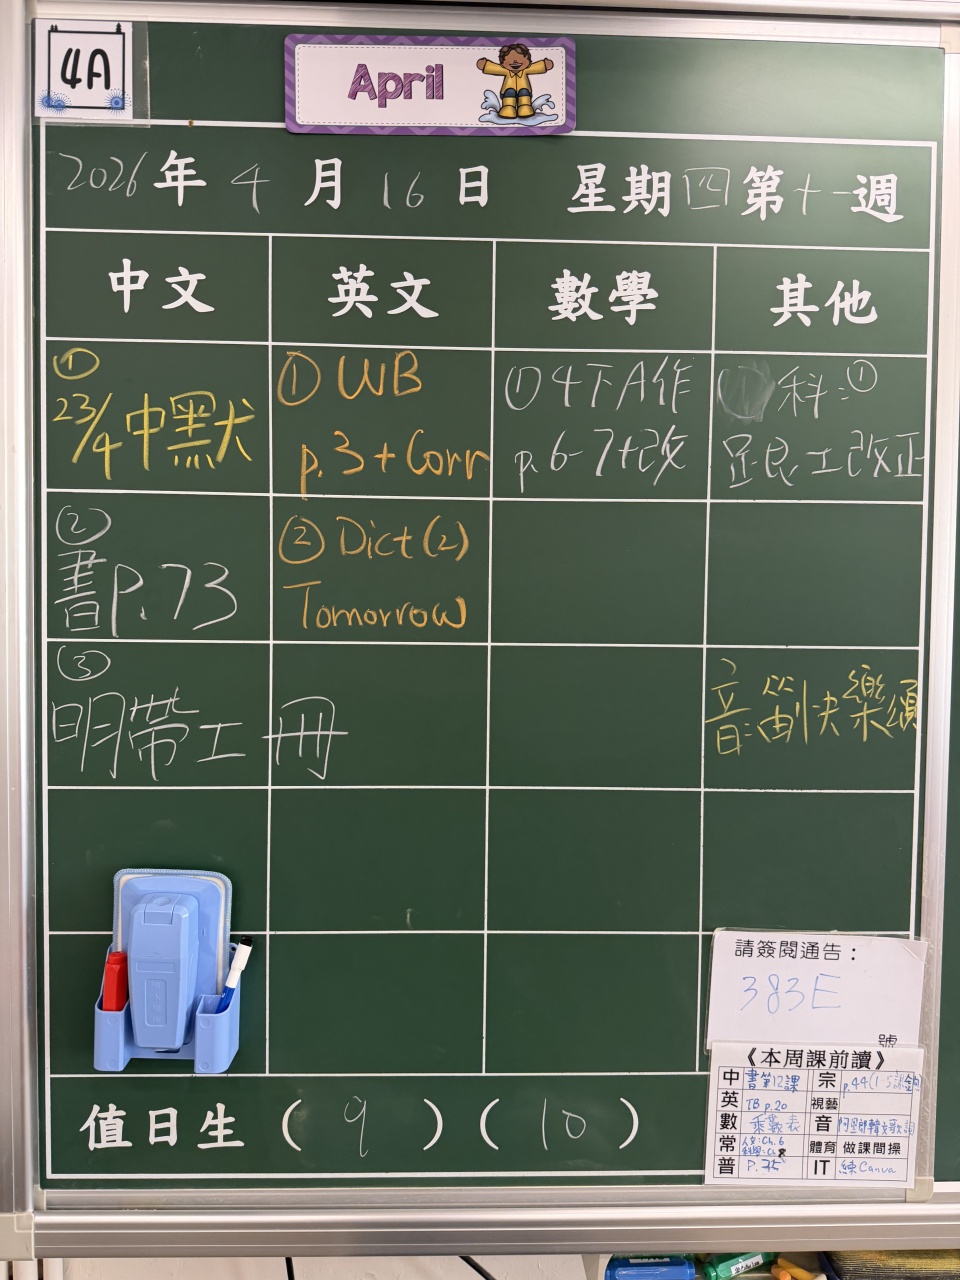 4A
April
2026年4月16日 星期四第十一週
中文 英文 數學 其他
①
23/4 中默
②
書P.73
③
明帶工冊
① WB
p.3+Corr
② Dict(2)
Tomorrow
①4下A作
p.6-7+改
科:①
改正
音:笛快樂頌
請簽閱通告：
383E
號
《本周課前讀》
中 書第12課
英 TB p.20
數 乘義表
常 人文:Ch.6
科學:Ch.8
普 P.75
宗 p.44(1-5
視藝
音
體育 做課間操
IT 練Canva
值日生（9）（10）